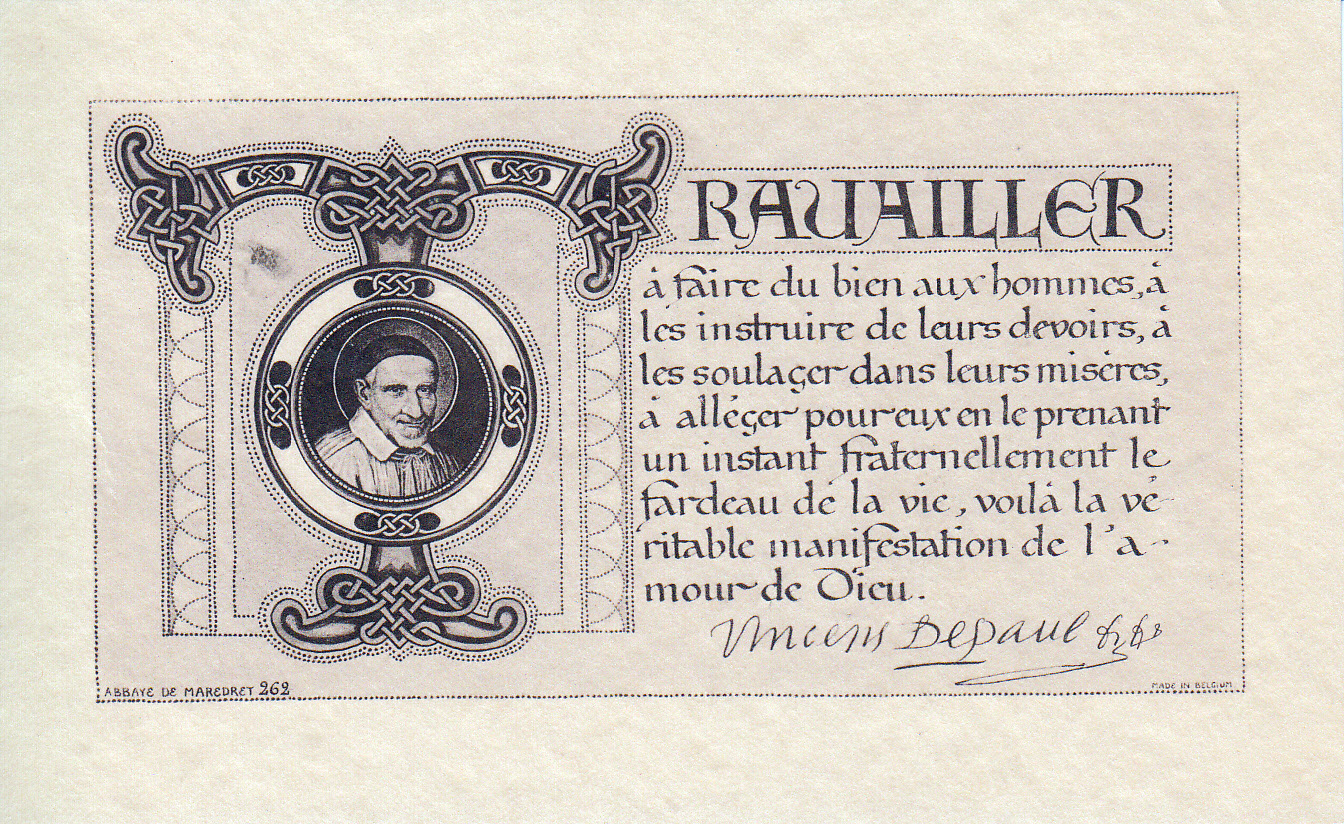 TRAVAILLER
à faire du bien aux hommes, à
les instruire de leurs devoirs, à
les soulager dans leurs misères,
à alléger pour eux en le prenant
un instant fraternellement le
fardeau de la vie, voilà la vé-
ritable manifestation de l'a-
mour de Dieu.
Vincens Depaul
ABBAYE DE MAREDRET 262
MADE IN BELGIUM